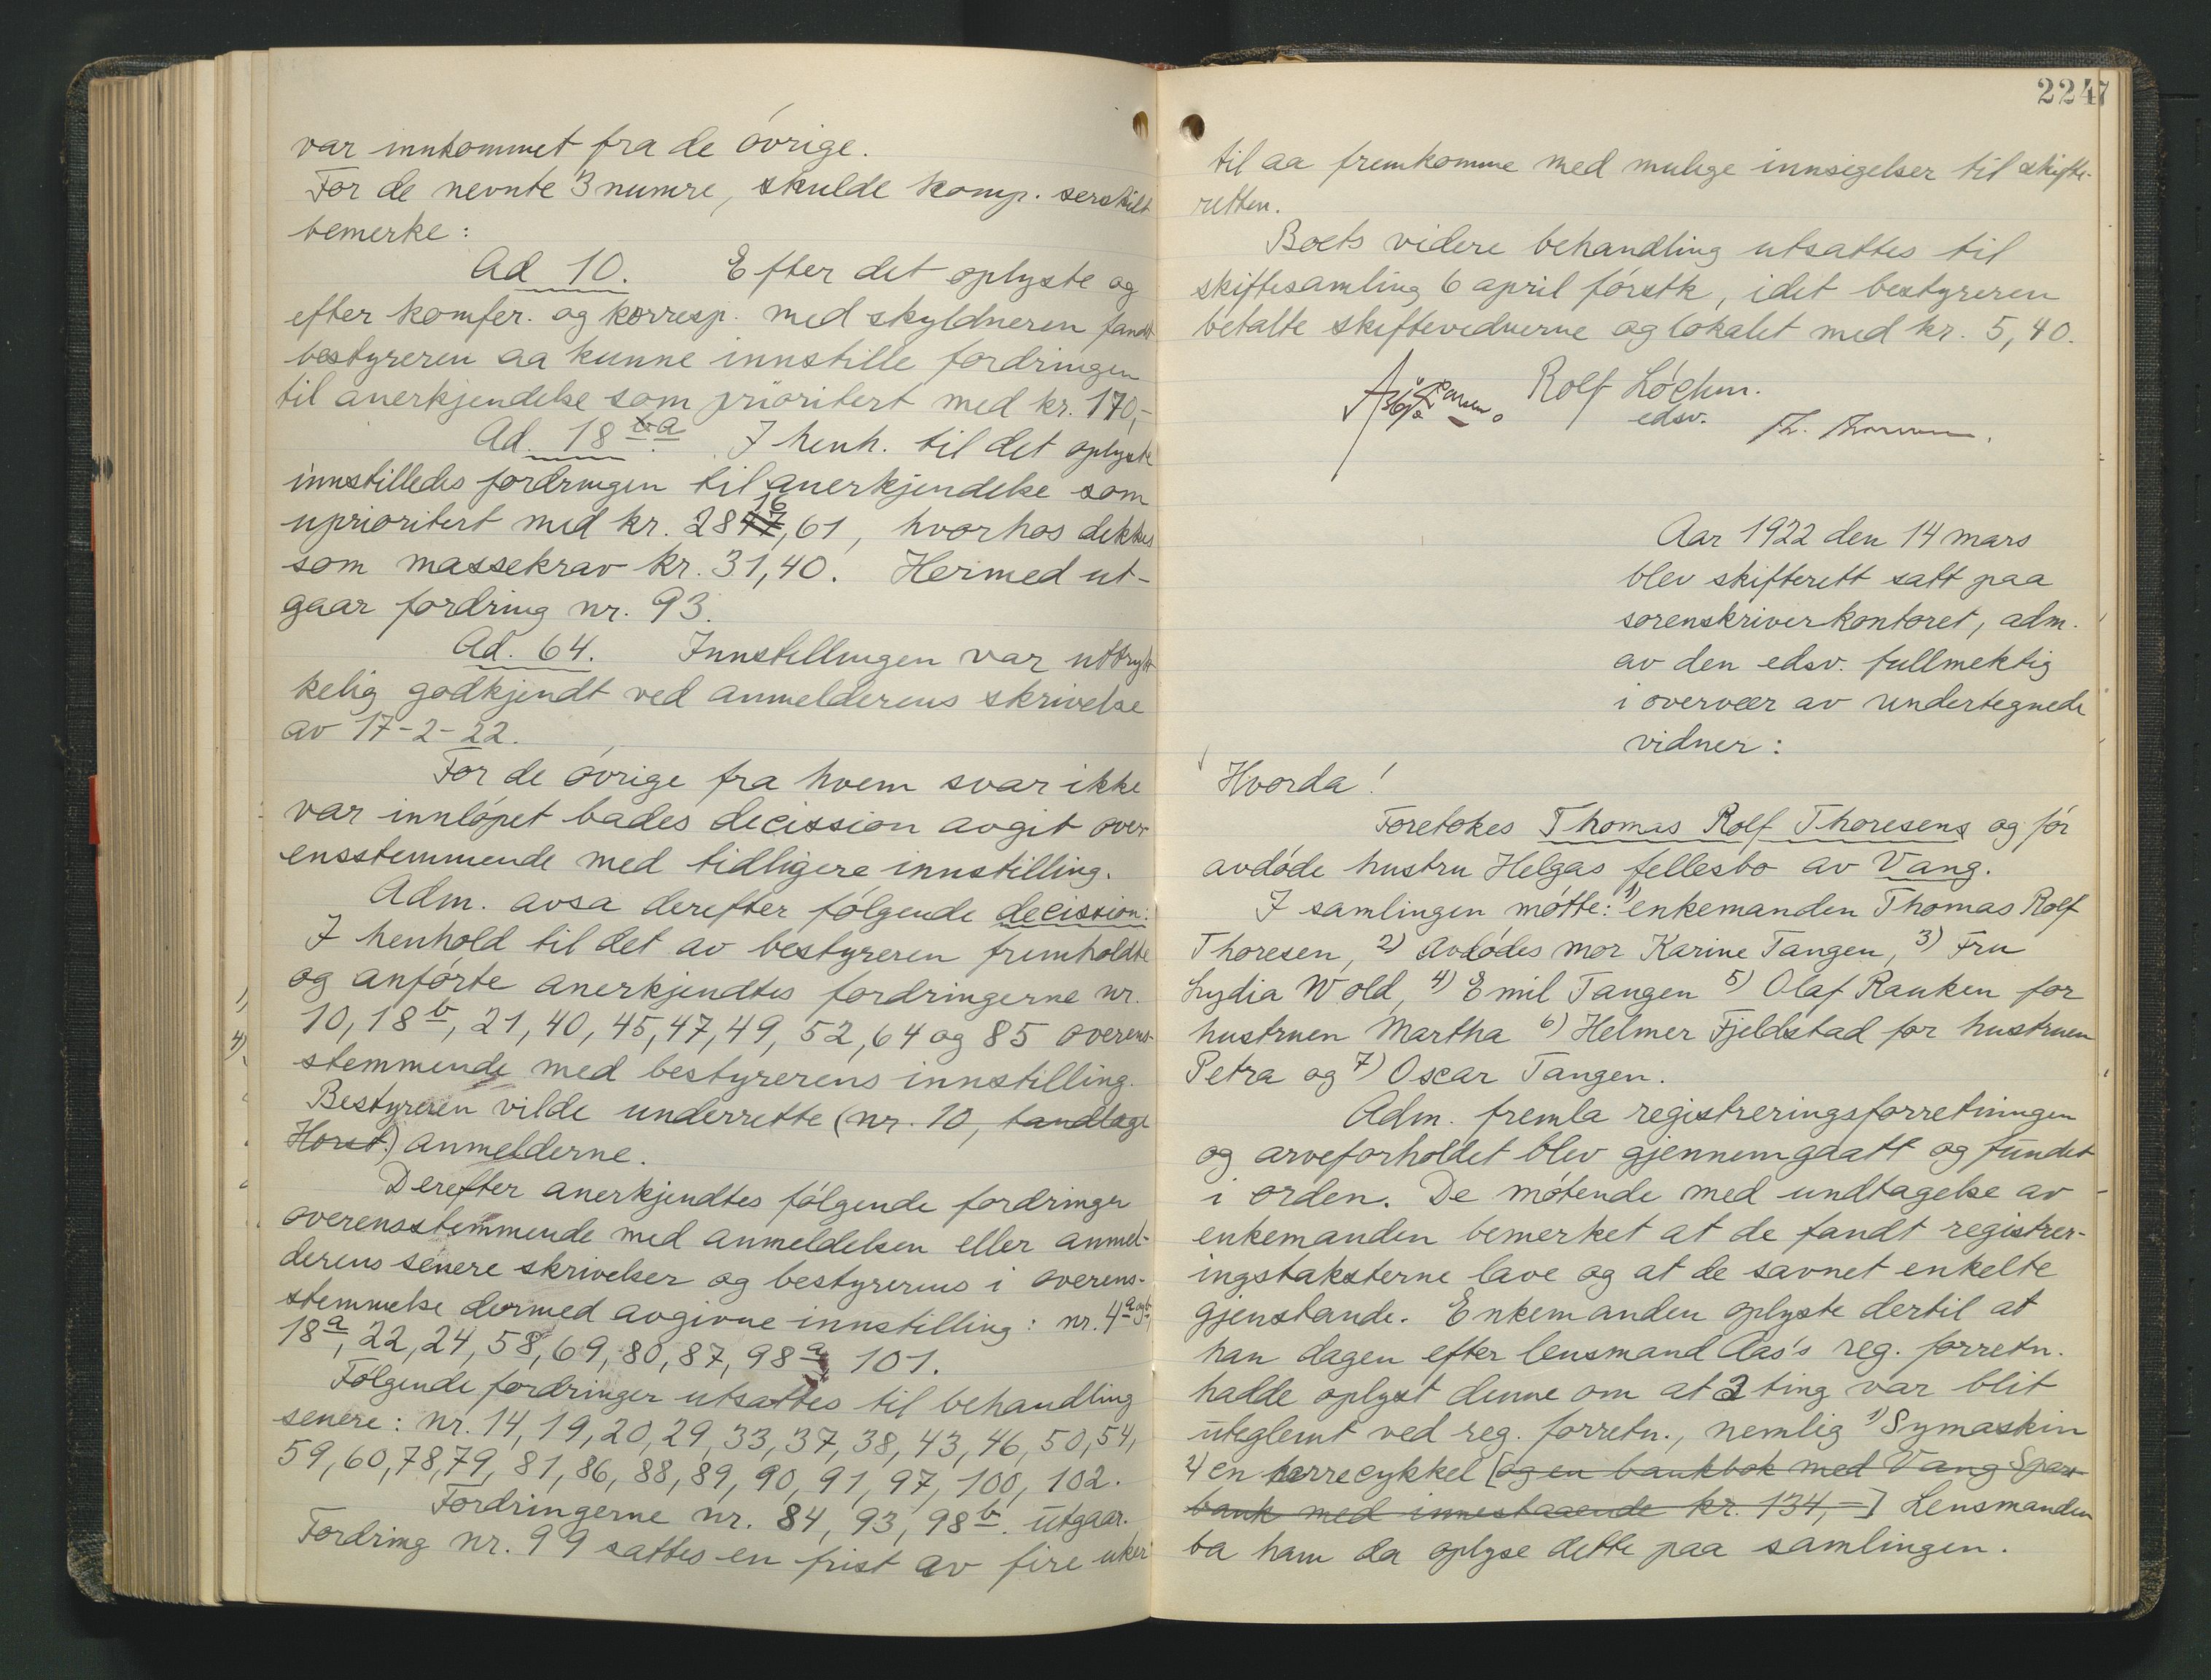 var innkommet fra de óvrige.
For de nevnte 3 numre, skulde komp. serskilt
bemerke:
Ad 10. Efter det oplyste og
efter komfer. og korresp. med skyldneren fandt
bestyreren aa kunne innstille fordringen
til anerkjendelse som prioritert med kr. 170,-
Ad. 18 a I henh. til det oplyste
innstilledes fordringen til anerkjendelse som
uprioritert med kr. 2816,61, hvorhos dekkes
som massekrav kr. 31,40. Hermed ut-
gaar fordring nr. 93.
Ad. 64. Innstillingen var uttryk-
kelig godkjendt ved anmelderens skrivelse
av 17-2-22.
For de óvrige fra hvem svar ikke
var innlópet bades decission avgit over-
ensstemmende med tidligere innstilling.
Adm. avsa derefter fólgende decission:
I henhold til det av bestyreren fremholdte
og anfórte anerkjendtes fordringerne nr.
10, 18 b, 21, 40, 45, 47, 49, 52, 64 og 85 overens-
stemmende med bestyrerens innstilling.
Bestyreren vilde underrette (nr. 10, tandlæge
Horst.) anmelderne.
Derefter anerkjendtes fólgende fordringer
overensstemmende med anmeldelsen eller anmel-
derens senere skrivelser og bestyrerens i overens-
stemmelse dermed avgivne innstilling: nr. 4 a og b,
18 a, 22, 24, 58, 69, 80, 87, 98 a, 101.
Fólgende fordringer utsattes til behandling
senere: nr. 14, 19, 20, 29, 33, 37, 38, 43, 46, 50, 54,
59, 60, 78, 79, 81, 86, 88, 89, 90, 91, 97, 100, 102.
Fordringerne nr. 84, 93, 98 b. utgaar.
Fordring nr. 99 sattes en frist av fire uker
2247
til aa fremkomme med mulige innsigelser til skifte-
retten.
Boets videre behandling utsattes til
skiftesamling 6 april fórstk, idet bestyreren
betalte skiftevidnerne og lokalet med kr. 5,40.
Rolf Lóchen.
edsv.
Aar 1922 den 14 mars
blev skifterett satt paa
sorenskriverkontoret, adm.
av den edsv. fullmektig
i overvær av undertegnede
vidner:
Hvorda!
Foretokes Thomas Rolf Thoresens og fór
avdóde hustru Helgas fellesbo av Vang.
I samlingen mótte: 1) enkemanden Thomas Rolf
Thoresen, 2) Avdódes mor Karine Tangen, 3) Fru
Lydia Wold, 4) Emil Tangen 5) Olaf Rauken for
hustruen Martha 6) Helmer Fjeldstad for hustruen
Petra og 7) Oscar Tangen.
Adm. fremla registreringsforretningen
og arveforholdet blev gjennemgaatt og fundet
i orden. De mótende med undtagelse av
enkemanden bemerket at de fandt registrer-
ingstaksterne lave og at de savnet enkelte
gjenstande. Enkemanden oplyste dertil at
han dagen efter lensmand Aas's reg. forretn.
hadde oplyst denne om at 2 ting var blit
uteglemt ved reg. forretn., nemlig 1) Symaskin
2) en herrecykkel [og en bankbok med Vang Spare-
bank med innestaaende kr. 134,-] Lensmanden
ba ham da oplyse dette paa samlingen.